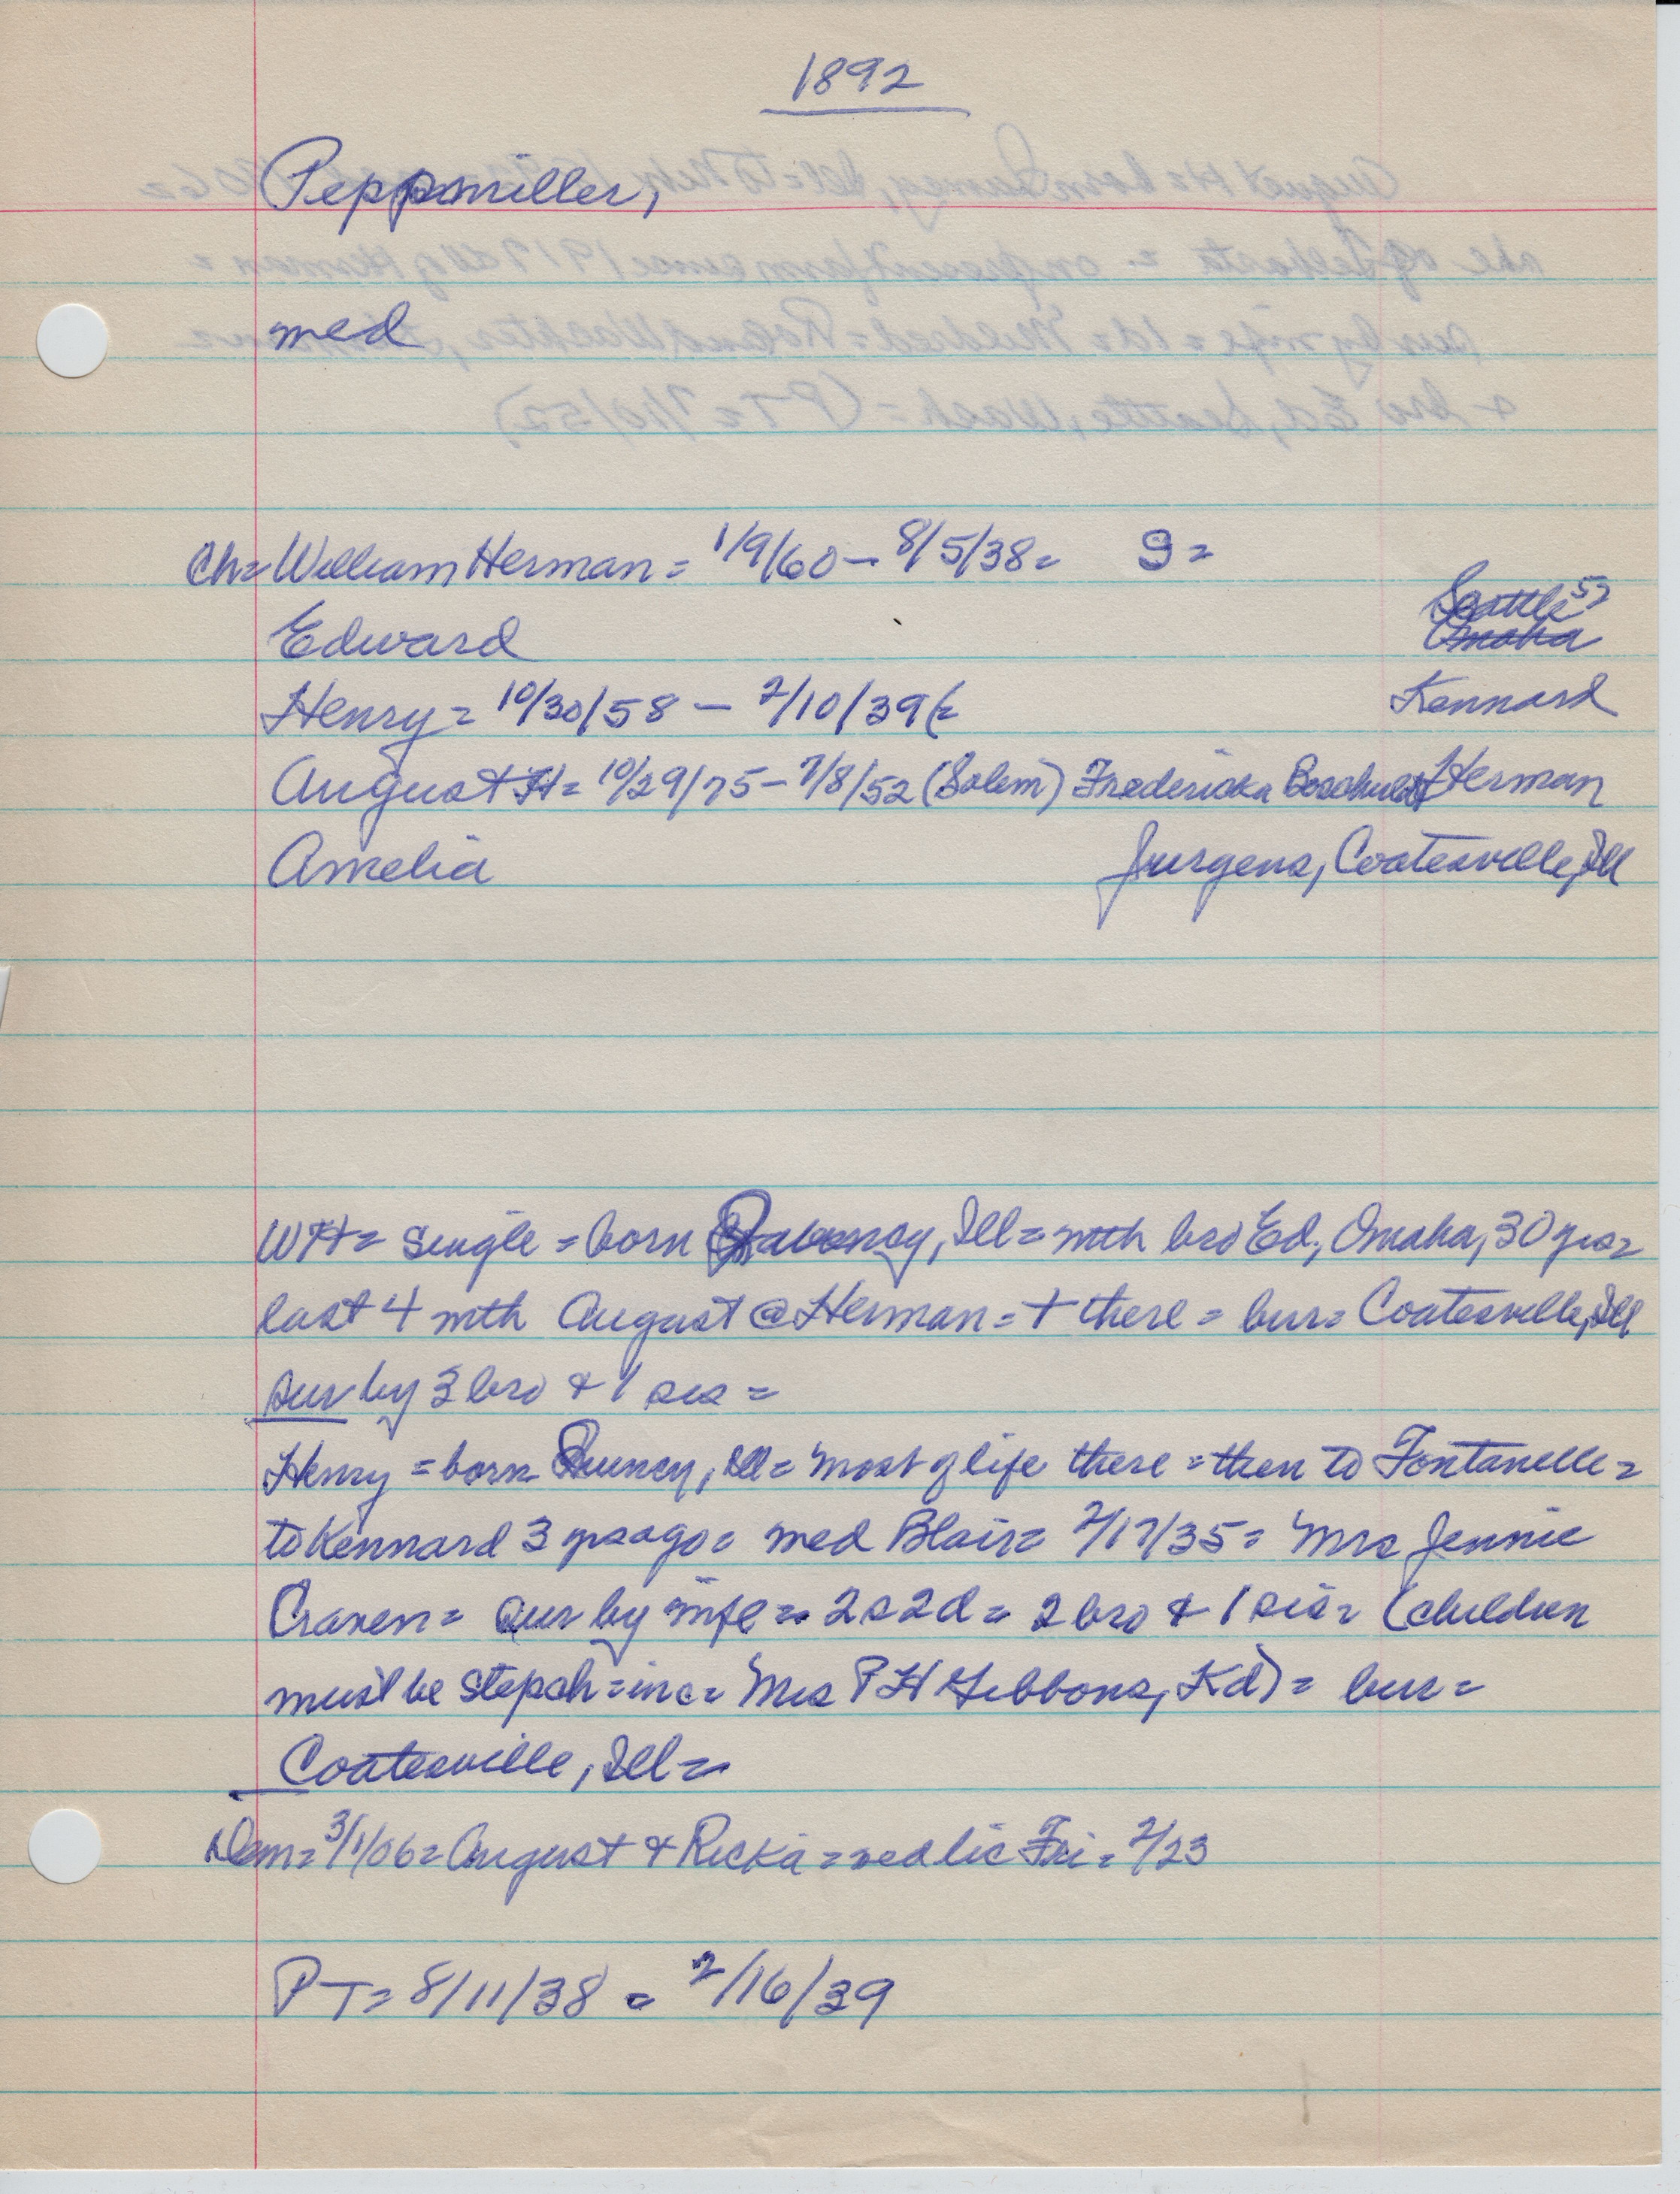 1892
Peppmiller,
med
Ch= William Herman = 1/9/60 - 8/5/38= S=
Edward Seattle 52 Omaha
Henry = 10/30/58 - 2/10/39 (= Kennard
August H= 10/29/75 - 7/8/52 (Salem) Fredericka Herman
Amelia Jurgens, Coatesville, Ill
WH= single = born Ill = with bro Ed, Omaha, 30 yrs=
last 4 mth August @ Herman = + there = bur= Coatesville, Ill
sur by 3 bro & 1 sis =
Henry = born Quincy, Ill= most of life there = then to Fontanelle =
to Kennard 3 yrs ago= med Blair= 2/17/35= Mrs Jennie
Craven= sur by wife = 2s 2d = 2 bro & 1 sis= (children
must be stepch = inc= Mrs P H Gibbons, Kd) = bur =
Coatesville, Ill =
Dem= 3/1/06= August & Ricka = wed lic Fri= 2/23
PT= 8/11/38 = 2/16/39